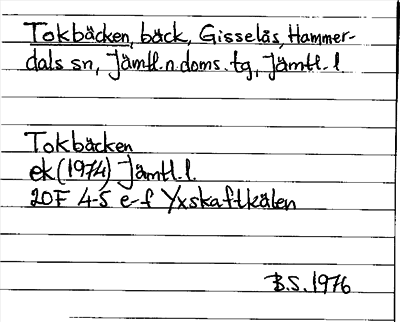 Tokbäcken, bäck, Gisselås, Hammer-
dals sn, Jämtl.n.doms.tg, Jämtl.l
Tokbäcken
ek (1974) Jämtl.l.
20F 4-5 e-f Yxskaftkälen
B.S. 1976